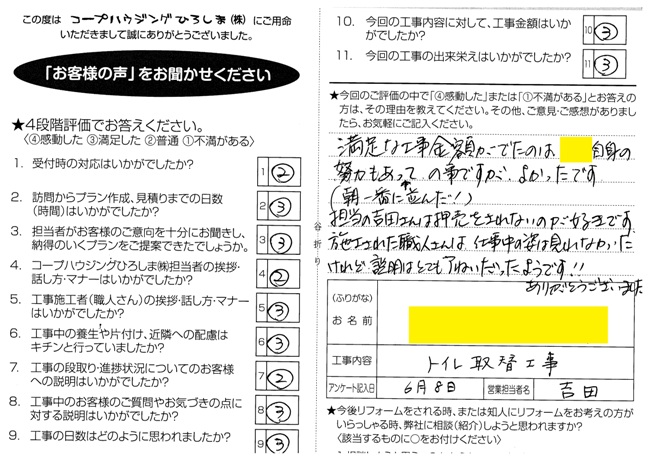 この度は コープハウジングひろしま(株) にご用命
いただきまして誠にありがとうございました。
「お客様の声」をお聞かせください
★4段階評価でお答えください。
〈④感動した ③満足した ②普通 ①不満がある〉
1. 受付時の対応はいかがでしたか？
1 ②
2. 訪問からプラン作成、見積りまでの日数
(時間)はいかがでしたか？
2 ③
3. 担当者がお客様のご意向を十分にお聞きし、
納得のいくプランをご提案できたでしょうか。
3 ③
4. コープハウジングひろしま㈱担当者の挨拶・
話し方・マナーはいかがでしたか？
4 ②
5. 工事施工者(職人さん)の挨拶・話し方・マナー
はいかがでしたか？
5 ③
6. 工事中の養生や片付け、近隣への配慮は
キチンと行っていましたか？
6 ③
7. 工事の段取り・進捗状況についてのお客様
への説明はいかがでしたか？
7 ②
8. 工事中のお客様のご質問やお気づきの点に
対する説明はいかがでしたか？
8 ③
9. 工事の日数はどのように思われましたか？
9 ③
谷折り
10. 今回の工事内容に対して、工事金額はいか
がでしたか？
10 ③
11. 今回の工事の出来栄えはいかがでしたか？
11 ③
★今回のご評価の中で「④感動した」または「①不満がある」とお答え
の方は、その理由を教えてください。その他、ご意見・ご感想がありまし
たら、お気軽にご記入ください。
満足な工事金額がでたのは 自身の
努力もあっての事ですが、よかったです
(朝一番に並んだ！)
担当の吉田さんは押売をされないのが好きです
施工された職人さんは、仕事中の姿は見れなかった
けれど説明はとても了ねいだったようです!!
ありがとうございました
(ふりがな)
お名前
工事内容 トイレ取替工事
アンケート記入日 6月8日 営業担当者名 吉田
★今後リフォームをされる時、または知人にリフォームをお考えの方が
いらっしゃる時、弊社に相談(紹介)しようと思われますか？
〈該当するものに○をお付けください〉